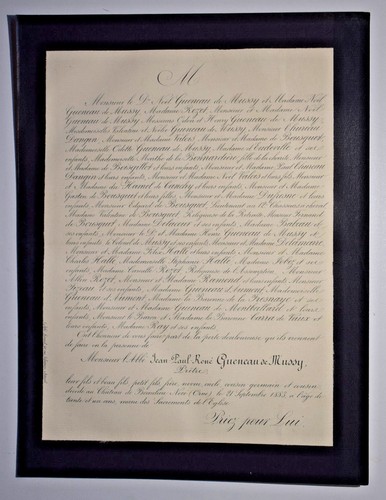 M
Monsieur le Dr. Noël Guéneau de Mussy et Madame Noël
Guéneau de Mussy, Madame Rozet, Monsieur et Madame Noël
Guéneau de Mussy, Messieurs Odon et Henry Guéneau de Mussy,
Mesdemoiselles Valentine et Guéneau de Mussy, Monsieur
Dangin, Monsieur et Madame Valois, Monsieur et Madame de Bousquet,
Mademoiselle Odette Guéneau de Mussy, Madame d' et ses
enfants, Mademoiselle Marthe de la Bernardière fille de la
et Madame de et leurs enfants, Monsieur et Madame Paul
Dangin et leurs enfants, Monsieur et Madame Noël Valois et leur fils, Monsieur
et Madame du Hamel de Canchy et leurs enfants, Monsieur et Madame
Gaston de Bousquet et leurs filles, Monsieur et Madame et leurs
enfants, Monsieur de Bousquet, au 12e Chasseurs à cheval,
Madame Valentine de Bousquet, Religieuse de la Retraite, Monsieur
de Bousquet, Madame et ses enfants, Madame
ses enfants, Monsieur le Dr. et Madame Henri Guéneau de Mussy et
leurs enfants, le Colonel de Mussy et ses enfants, Madame
Monsieur et Madame Hallé et leurs enfants, Monsieur et Madame
Charles Hallé, Mademoiselle Stéphanie Hallé, Madame et ses
enfants, Madame Camille Rozet, Religieuse de l'Assomption, Monsieur
Albin Rozet, Monsieur et Madame et leurs enfants, Monsieur
et ses enfants, Madame Guéneau d'Aumont, Mademoiselle
Guéneau d'Aumont, Madame la Baronne de la Fresnaye et ses
enfants, Monsieur et Madame Guéneau de Montbeillard et leurs
enfants, Monsieur le Baron et Madame la Baronne de et
leurs enfants, Madame Ray et ses enfants,
Ont l'honneur de vous faire part de la perte douloureuse qu'ils viennent
de faire en la personne de
Monsieur l'Abbé Jean Paul René Guéneau de Mussy,
Prêtre,
leur fils et beau fils, petit fils, frère, neveu, oncle, cousin germain et cousin,
décédé au Château de Beaulieu (Orne), le 21 Septembre 1885, à l'âge de
trente et un ans, muni des Sacrements de l'Eglise.
Priez pour Lui